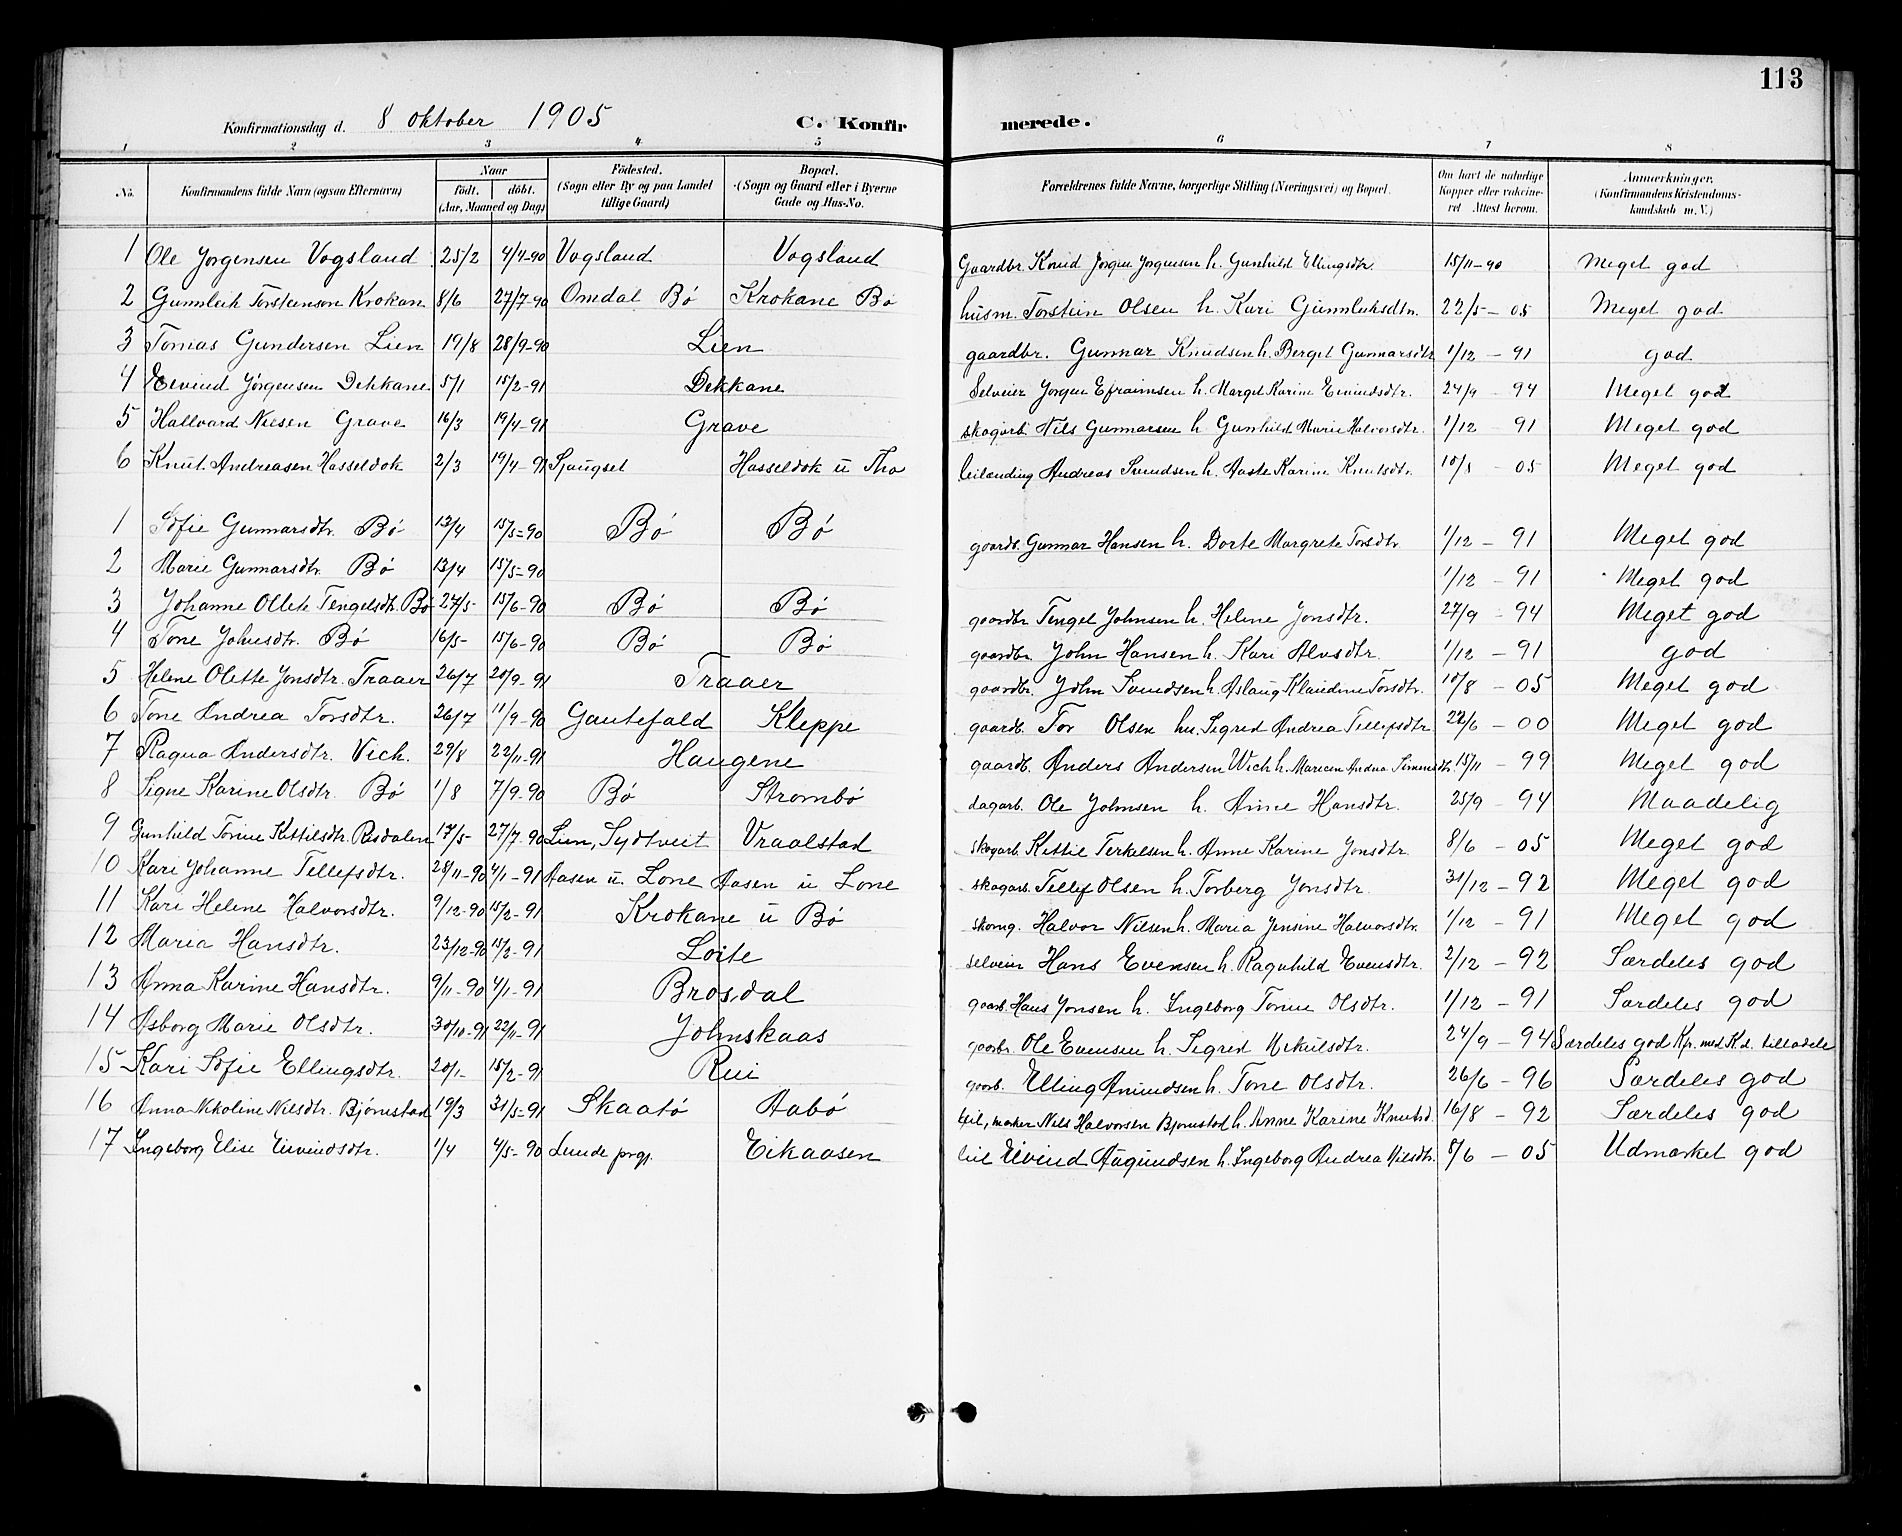 113
Konfirmationsdag d. 8 oktober 1905 C. Konfirmerede.
1 2 3 4 5 6 7 8
No. Konfirmandens fulde Navn (ogsaa Efternavn) Naar födt. döbt. (Aar, Maaned og Dag) Födested. (Sogn eller By og paa Landet tillige Gaard) Bopæl. (Sogn og Gaard eller i Byerne Gade og Hus-No. Forældrenes fulde Navne, borgerlige Stilling (Næringsvei) og Bopæl. Om havt de naturlige Kopper eller vakcineret Attest herom. Anmerkninger. (Konfirmandens Kristendomskundskab m. V.)
1 Ole Jørgensen Vogsland 25/2 4/4-90 Vogsland Vogsland Gaardbr. Knud Jørgen Jørgensen h. Gunhild Ellingsdtr. 15/11-90 Meget god
2 Gunnleik Torsteinson Krokan 8/6 27/7-90 Omdal Bø Krokane Bø husm. Torstein Olsen h. Kari Gunnleksdtr. 22/5-05 Meget god
3 Tomas Gundersen Lien 19/8 28/9-90 Lien gaardbr. Gunnar Knudsen h. Berget Gunnarsdtr 1/12-91 god
4 Eivind Jørgensen Dekkane 5/1 15/2-91 Dekkane Selveier Jørgen Efraimsen h. Marget Karine Eivindsdtr. 24/9-94 Meget god
5 Hallvard Nilsen Grave 16/3 19/4-91 Grave skogarb. Nils Gunnarsen h. Gunhild Marie Halvorsdtr. 1/12 91 Meget god
6 Knut Andreasen Hasseldok 2/3 19/4-91 Hasseldok u Tho leilænding Andreas h. Aaste Karine Knutsdtr. 10/5-05 Meget god
1 Sofie Gunnarsdtr. Bø 13/4 15/5-90 Bø Bø gaardb. Gunnar Hansen h. Dorte Margrete Torsdtr 1/12-91 Meget god
2 Marie Gunnarsdtr. Bø 13/4 15/5-90 1/12-91 Meget god
3 Johanne Olete Tengelsdtr. Bø 27/5- 15/6-90 Bø Bø gaardbr Tengel Johnsen h. Helene Jonsdtr. 27/9-94 Meget god
4 Tone Johnsdtr. Bø 16/5- 15/6-90 Bø Bø gaardbr. John Hansen h. Kari Alvsdtr. 1/12-91 god
5 Helene Olette Jonsdtr. Traaer 26/7 20/9-91 Traaer gaardbr. John Svendsen h. Aslaug Klaudine Torsdtr. 10/8-05 Meget god
6 Tone Andrea Torsdtr. 26/7 11/9-90 Gautefald Kleppe gaardb. Tor Olsen hu. Sigred Andrea Tellefsdtr 22/6-00 Meget god
7 Ragna Andersdtr. Vich. 29/8 22/11-91 Haugene gaardb. Anders Andersen Wich h. Maricen Andrea 15/11-99 Meget god
8 Signe Karine Olsdtr. Bø 1/8 7/9-90 Bø Strombø dagarb. Ole Johnsen h. Anne Hansdtr. 25/9-94 Maadelig
9 Gunhild Torine Kittilsdtr. Rosdalen 17/5- 27/7-90 Lien, Sydtveit Vraalstad skogarb. Kittil Terkelsen h. Anne Karine Jonsdtr. 8/6-05 Meget god
10 Kari Johanne Tellefsdtr. 28/11-90 4/1-91 Aasen u. Lone Aasen u Lone skogarb. Tellef Olsen h. Torberg Jonsdtr. 31/12-92 Meget god
11 Kari Helene Halvorsdtr. 9/12-90 15/2-91 Krokane u Bø skomg. Halvor Nilsen h. Maria Jensine Halvorsdtr. 1/12-91 Meget god
12 Maria Hansdtr. 23/12-90 15/2-91 Loite selveier Hans Evensen h. Ragnhild Evensdtr. 2/12-92 Særdeles god
13 Anna Karine Hansdtr. 9/11-90 4/1-91 Brosdal gaarb. Hans Jonsen h. Ingeborg Torine Olsdtr. 1/12-91 Særdeles god
14 Asborg Marie Olsdtr. 30/10-91 22/11-91 Johnskaas gaarbr. Ole Evensen h. Sigred 24/9-94 Særdeles god Kfr. med K. d. tilladele
15 Kari Sofie Ellingsdtr. 20/1- 15/2-91 Rui gaarb. Elling Amundsen h. Tone Olsdtr. 26/6-96 Særdeles god
16 Anna Nikoline Nilsdtr. Bjørnstad 19/3 31/5-91 Skaatø Aabø Nils Halvorsen Bjørnstad h. Anne Karine Knutsd. 16/8-92 Særdeles god
17 Ingeborg Elise Eivindsdtr. 1/4 4/5-90 Lunde prgj. Eikaasen leil Eivind Aagundsen h. Ingeborg Andrea Nilsdtr. 8/6-05 Udmærket god